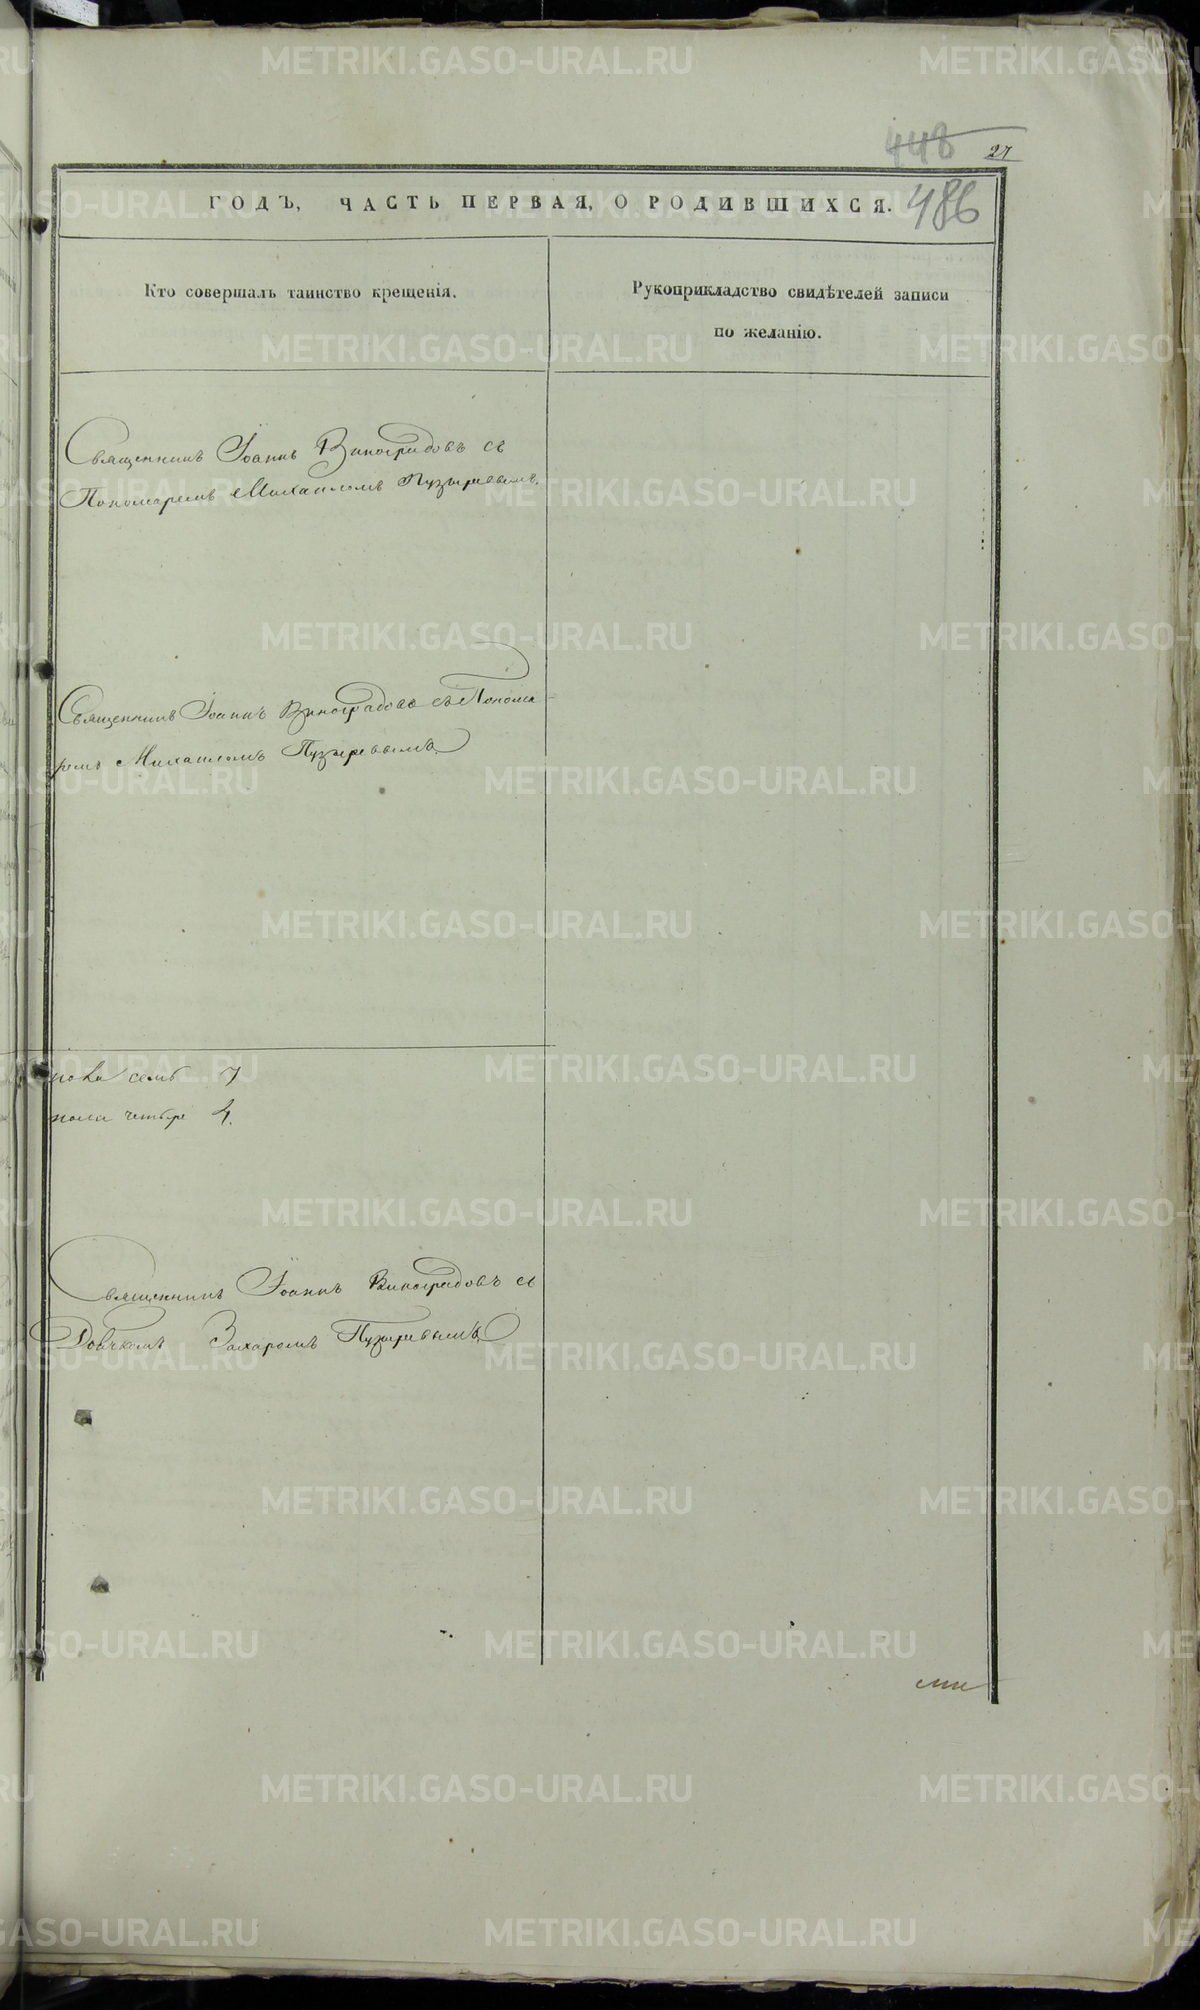 448 27
ГОДЪ, ЧАСТЬ ПЕРВАЯ, О РОДИВШИХСЯ. 486
Кто совершалъ таинство крещенія.
Рукоприкладство свидѣтелей записи
по желанію.
Священникъ Іоаннъ Виноградовъ съ
Пономаремъ Михаиломъ Пузыревымъ.
Священникъ Іоаннъ Виноградовъ съ Понома-
ремъ Михаиломъ Пузыревымъ.
пола семь 7
пола четыре 4.
Священникъ Іоаннъ Виноградовъ съ
Дьячкомъ Захаромъ Пузыревымъ
METRIKI.GASO-URAL.RU